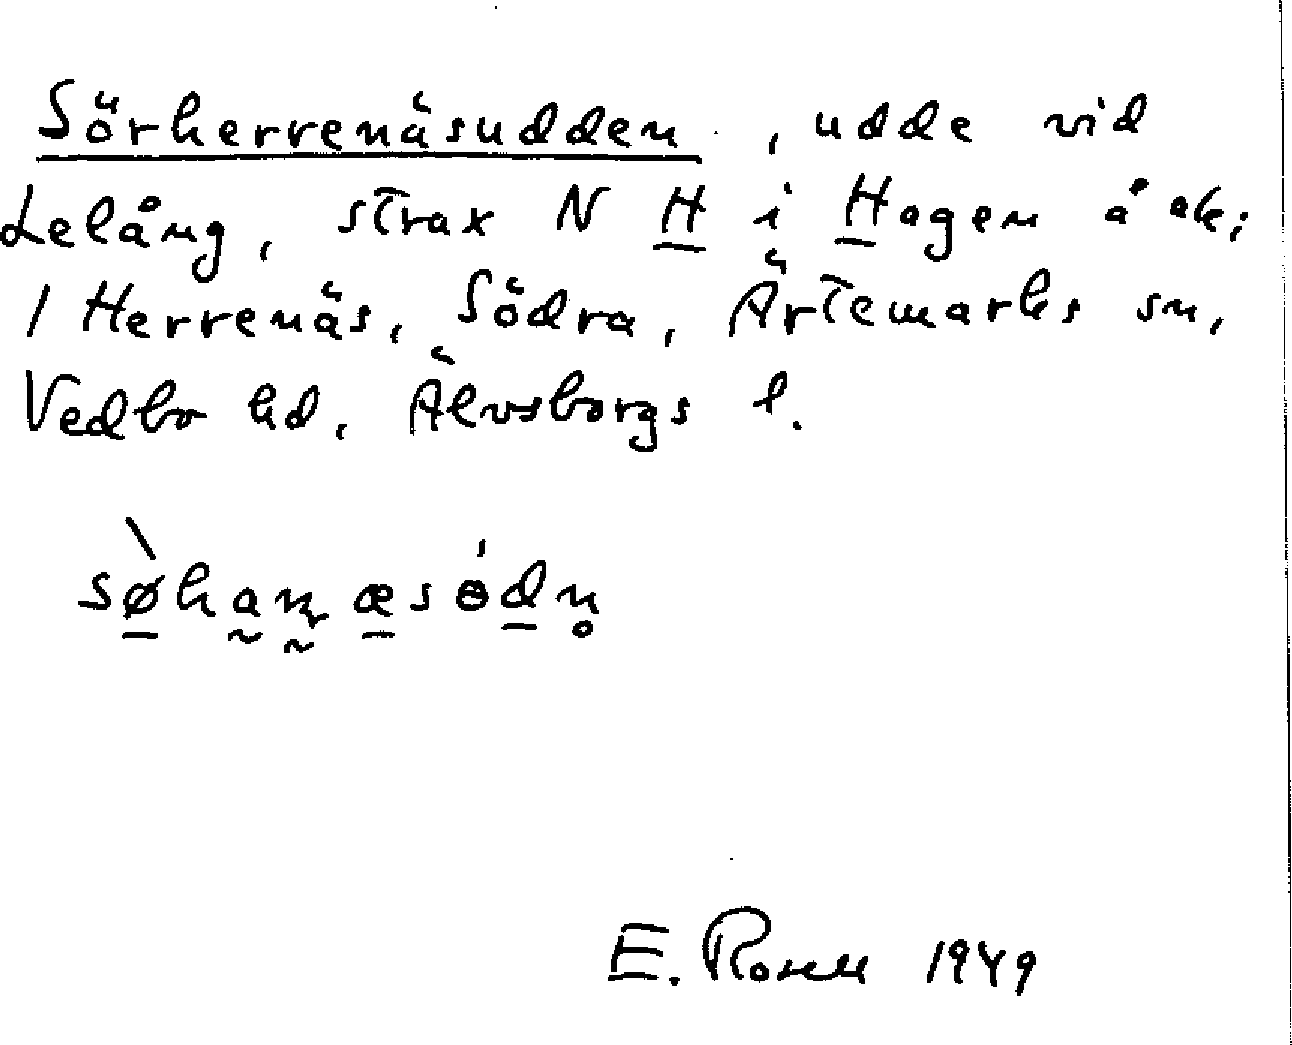 Sörherrenäsudden, udde vid
Lelång, strax N H i Hagen å ek;
1 Herrenäs, Södra, Ärtemarks sn,
Vedbo hd, Älvsborgs l.
E. Rosell 1949